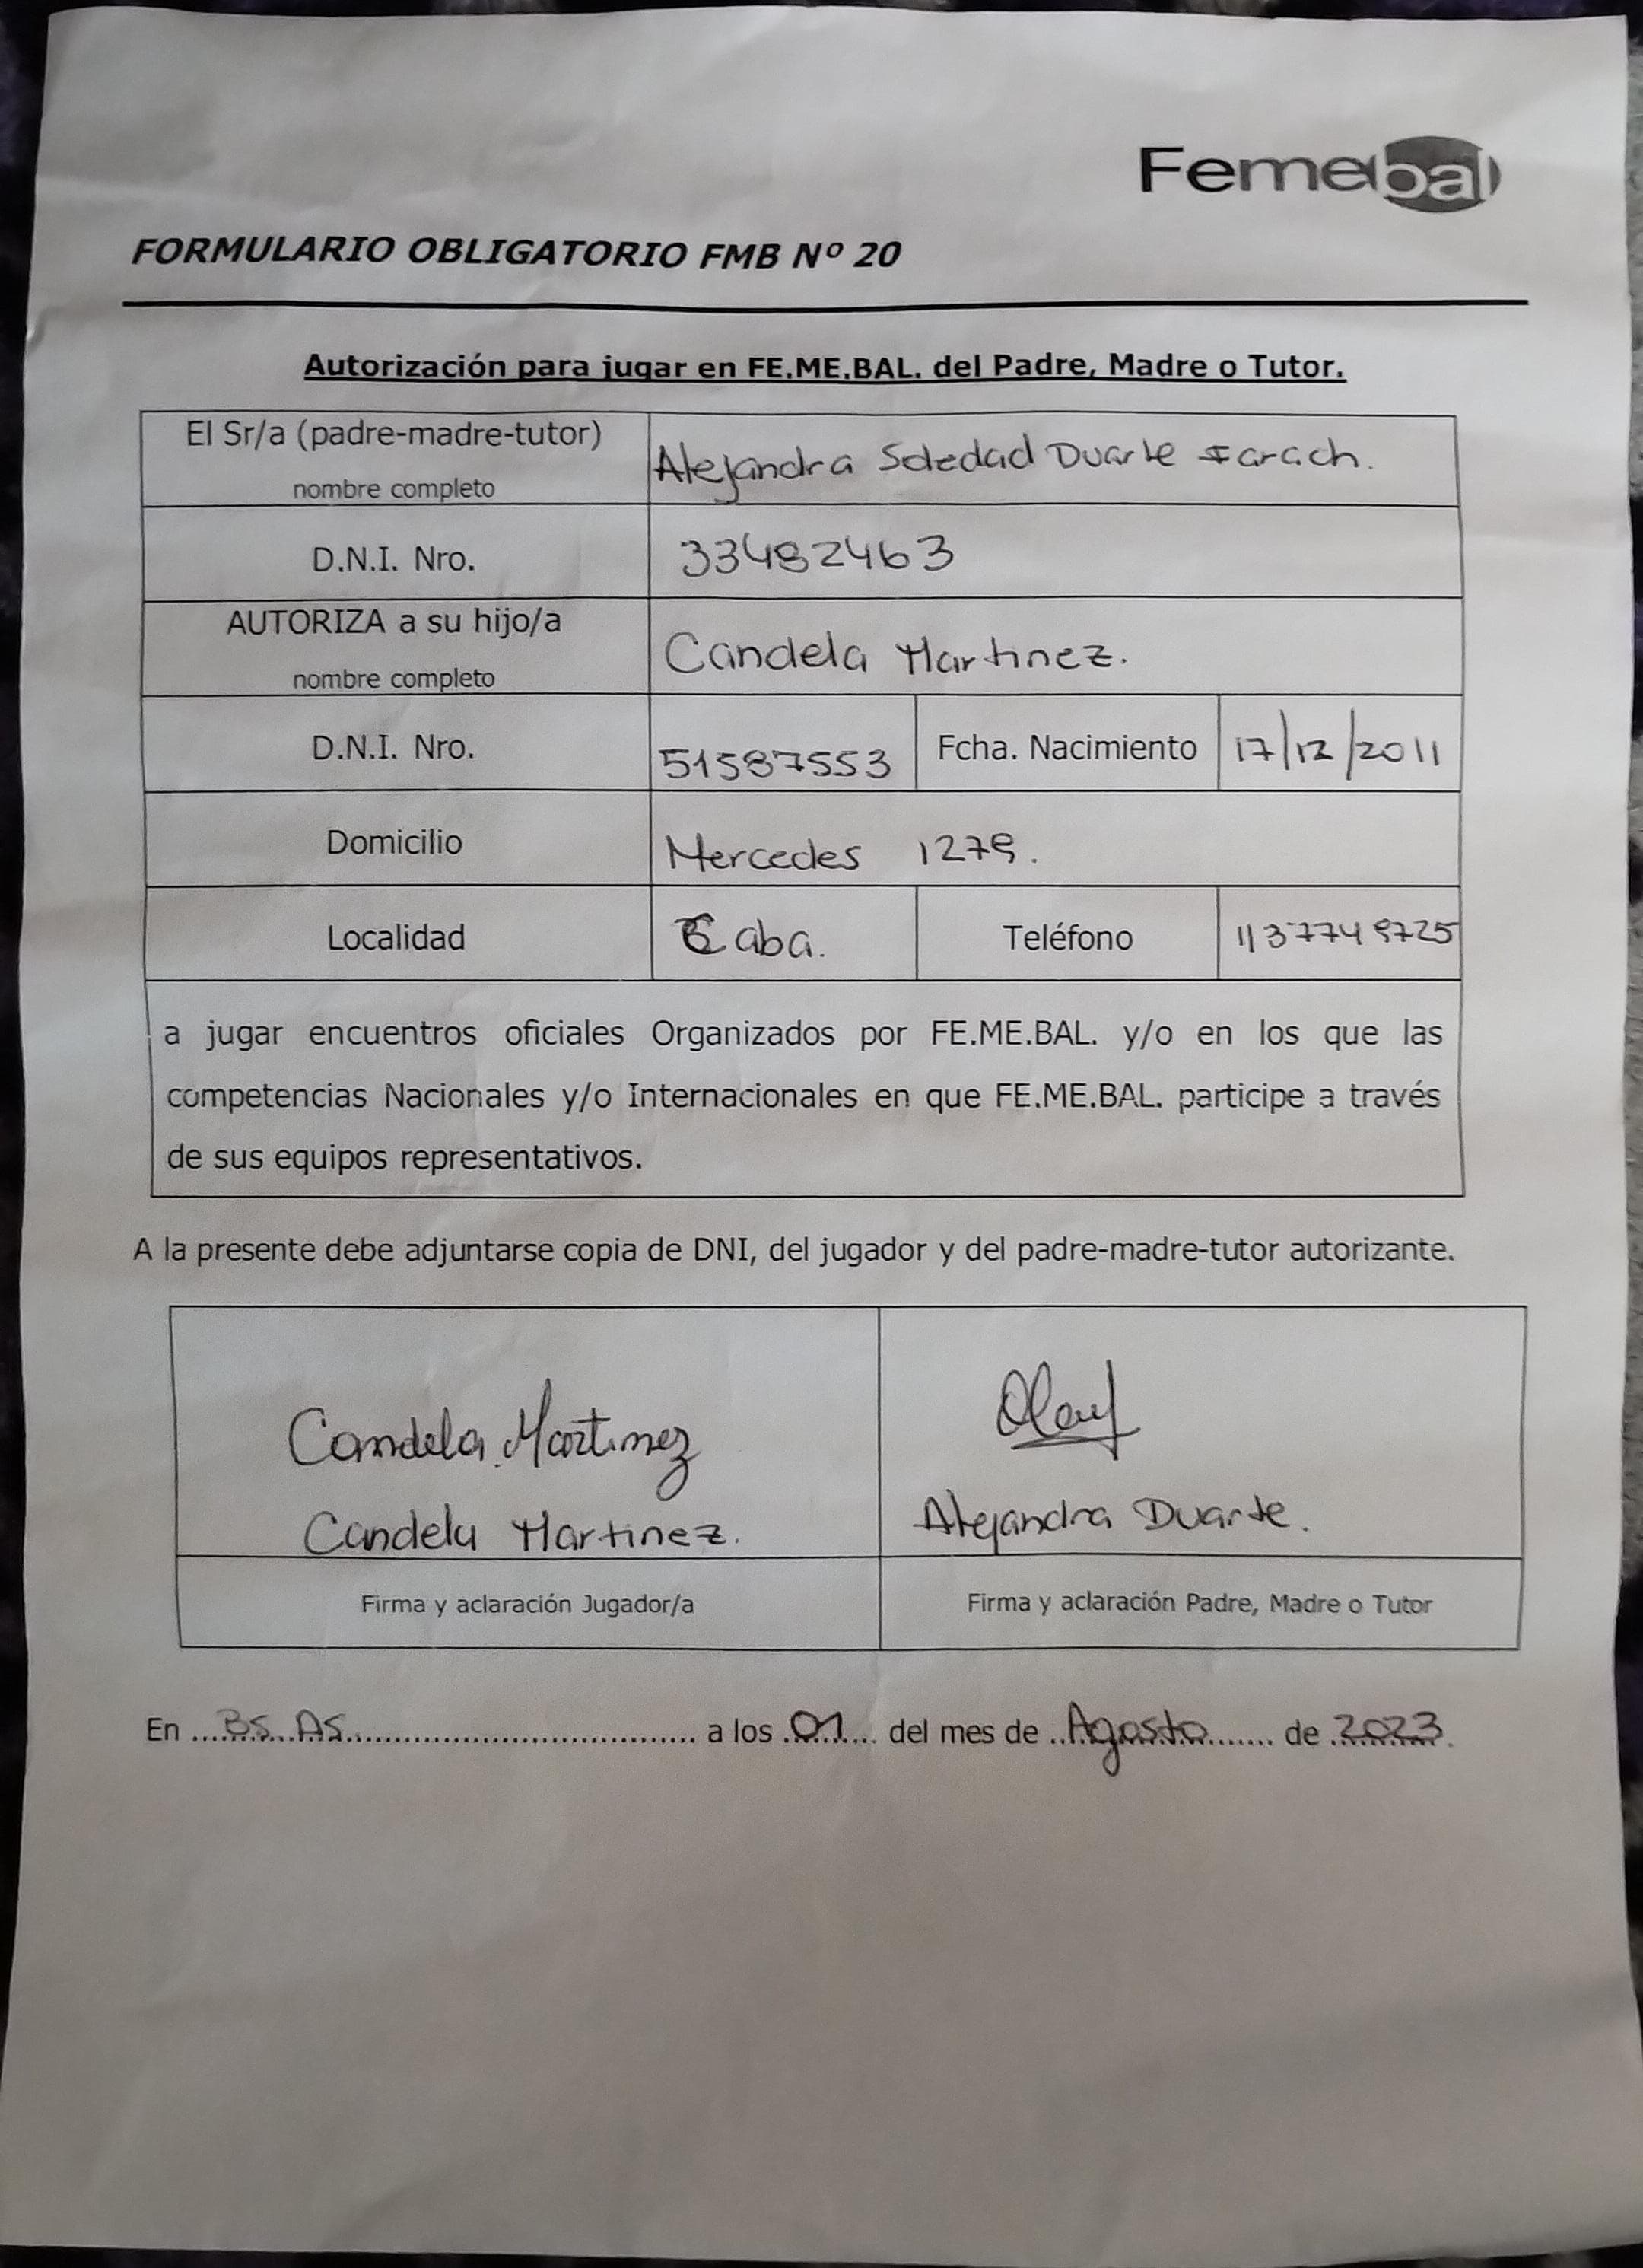 Femebal
FORMULARIO OBLIGATORIO FMB Nº 20
Autorización para jugar en FE.ME.BAL. del Padre, Madre o Tutor.
El Sr/a (padre-madre-tutor)
nombre completo
Alejandra Soledad Duarte Farach.
D.N.I. Nro. 33482463
AUTORIZA a su hijo/a
nombre completo
Candela Martinez.
D.N.I. Nro. 51587553 Fcha. Nacimiento 17/12/2011
Domicilio Mercedes 1279.
Localidad Caba. Teléfono
a jugar encuentros oficiales Organizados por FE.ME.BAL. y/o en los que las
competencias Nacionales y/o Internacionales en que FE.ME.BAL. participe a través
de sus equipos representativos.
A la presente debe adjuntarse copia de DNI, del jugador y del padre-madre-tutor autorizante.
Candela Martinez
Candela Martinez.
Firma y aclaración Jugador/a
Alejandra Duarte.
Firma y aclaración Padre, Madre o Tutor
En Bs. As. a los 01 del mes de Agosto de 2023.